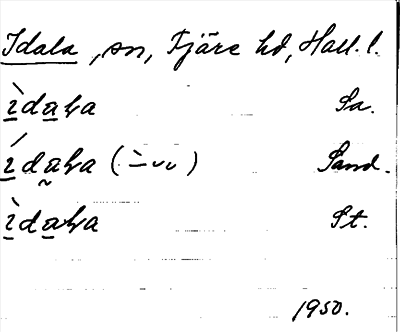 Idala, sn, Fjäre hd, Hall. l.
ı̀daꞎa Sa.
ı́da̰ꞎa (–́ ᴗ ᴗ) Sand.
ı̀daꞎa St.
1950.